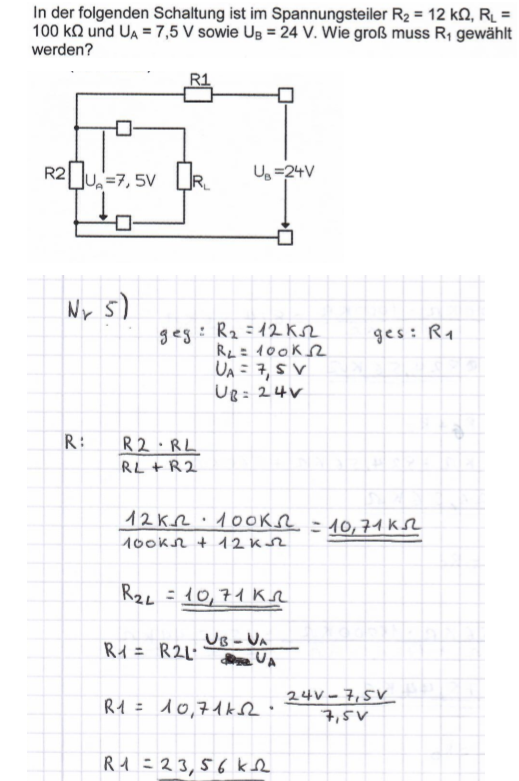 In der folgenden Schaltung ist im Spannungsteiler R₂ = 12 kΩ, R_L =
100 kΩ und U_A = 7,5 V sowie U_B = 24 V. Wie groß muss R₁ gewählt
werden?
R1
R2
U_A=7,5V
R_L
U_B=24V
Nr 5)
geg: R2 = 12 KΩ ges: R1
RL = 100KΩ
UA = 7,5 V
UB = 24V
R: R2 · RL
RL + R2
12KΩ · 100KΩ = 10,71KΩ
100KΩ + 12KΩ
R2L = 10,71 KΩ
R1 = R2L · UB - UA
UA
R1 = 10,71kΩ · 24V - 7,5V
7,5V
R1 = 23,56 kΩ